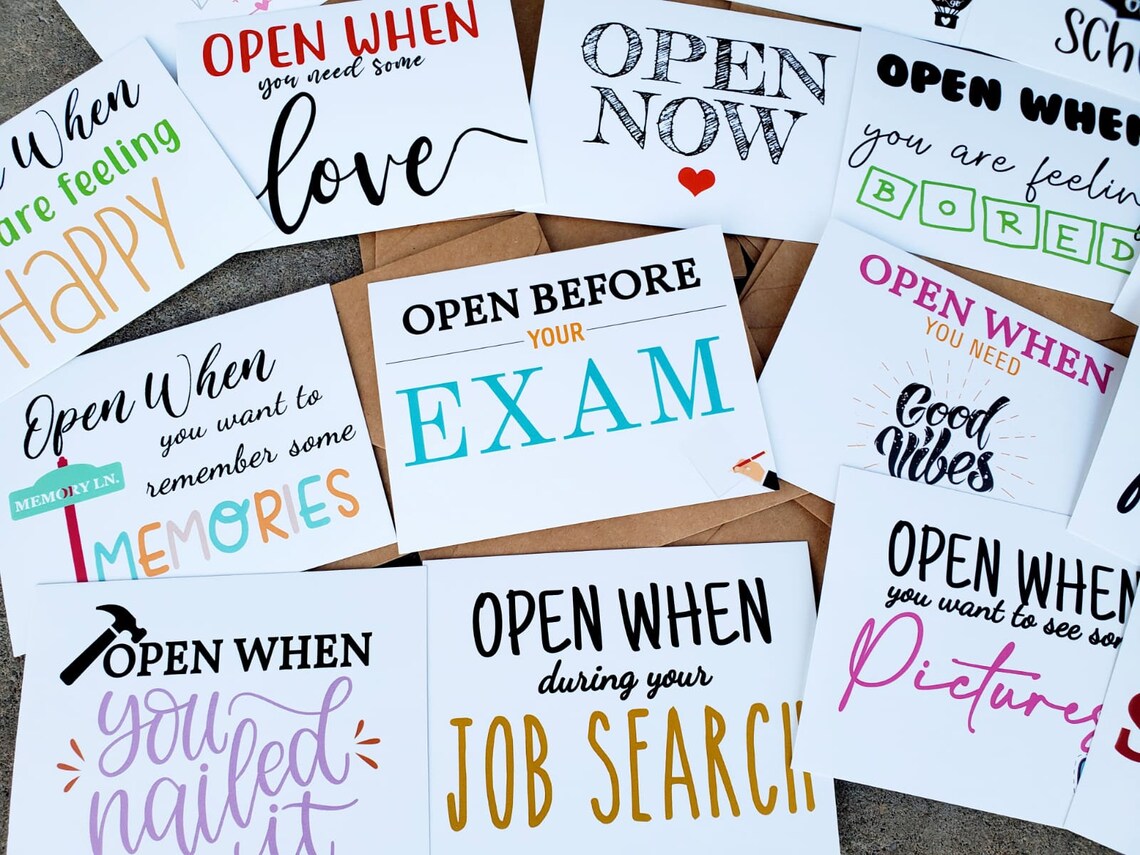 When
are feeling
HAPPY
OPEN WHEN
you need some
love
OPEN
NOW
OPEN WHEN
you are feeling
BORED
OPEN BEFORE
YOUR
EXAM
OPEN WHEN
YOU NEED
Good
Vibes
Open When
you want to
remember some
MEMORIES
MEMORY LN.
OPEN WHEN
you nailed
it
OPEN WHEN
during your
JOB SEARCH
OPEN WHEN
you want to see som
Pictures